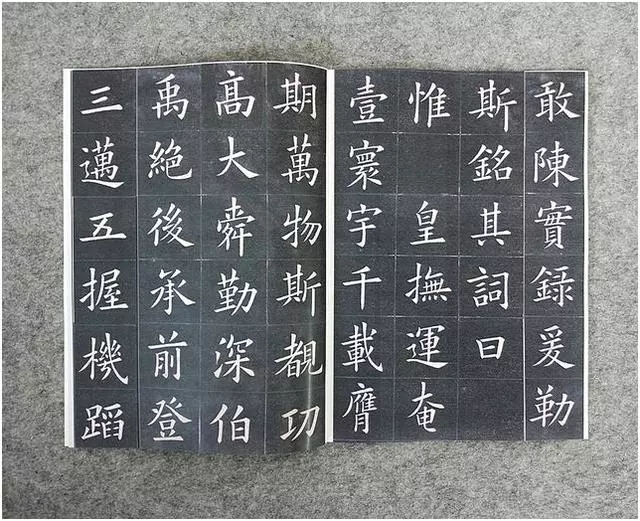 敢陳實録爰勒
斯銘其詞曰
惟 皇撫運奄
壹寰宇千載膺
期萬物斯覩功
髙大舜勤深伯
禹絶後承前登
三邁五握機蹈